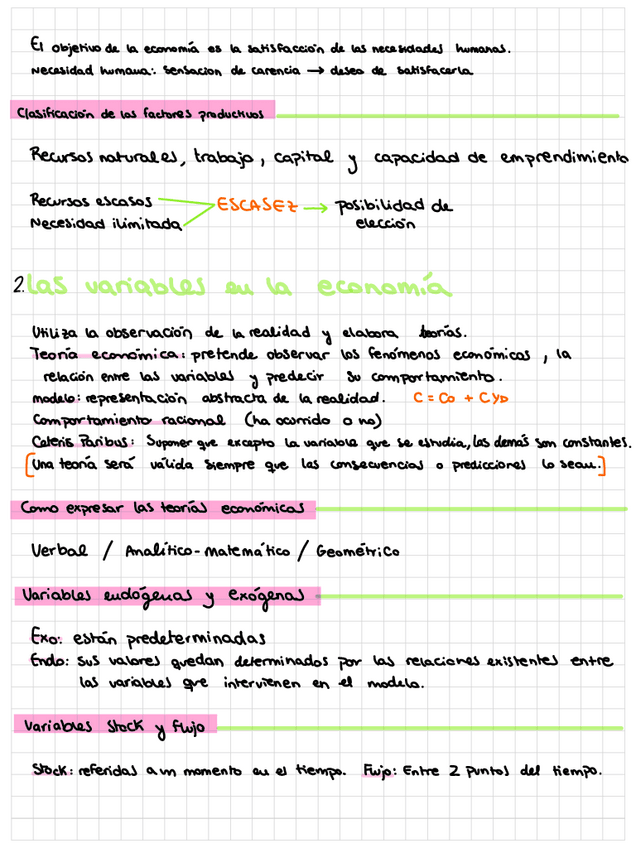 El objetivo de la economía es la satisfacción de las necesidades humanas.
Necesidad humana: sensacion de carencia → deseo de satisfacerla
Clasificación de los factores productivos
Recursos naturales, trabajo, capital y capacidad de emprendimiento
Recursos escasos
Necesidad ilimitada
ESCASEZ → posibilidad de
elección
2. Las variables en la economía
Utiliza la observación de la realidad y elabora teorías.
Teoría económica: pretende observar los fenómenos económicos, la
relación entre las variables y predecir su comportamiento.
modelo: representación abstracta de la realidad. C = Co + CYD
Comportamiento racional (ha ocurrido o no)
Ceteris Paribus: Suponer que excepto la variable que se estudia, las demás son constantes.
[Una teoría será válida siempre que las consecuencias o predicciones lo sean.]
Como expresar las teorías económicas
Verbal / Analítico-matemático / Geométrico
Variables endógenas y exógenas
Exo: están predeterminadas
Endo: sus valores quedan determinados por las relaciones existentes entre
las variables que intervienen en el modelo.
Variables Stock y flujo
Stock: referidas a un momento en el tiempo. Flujo: Entre 2 puntos del tiempo.